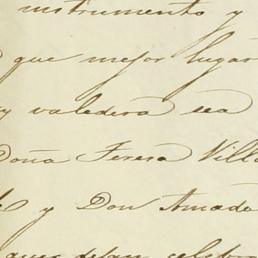 instrumento y
que mejor lugar
y valedera sea
Doña Teresa Villa
y Don Amado
que dejan celebr